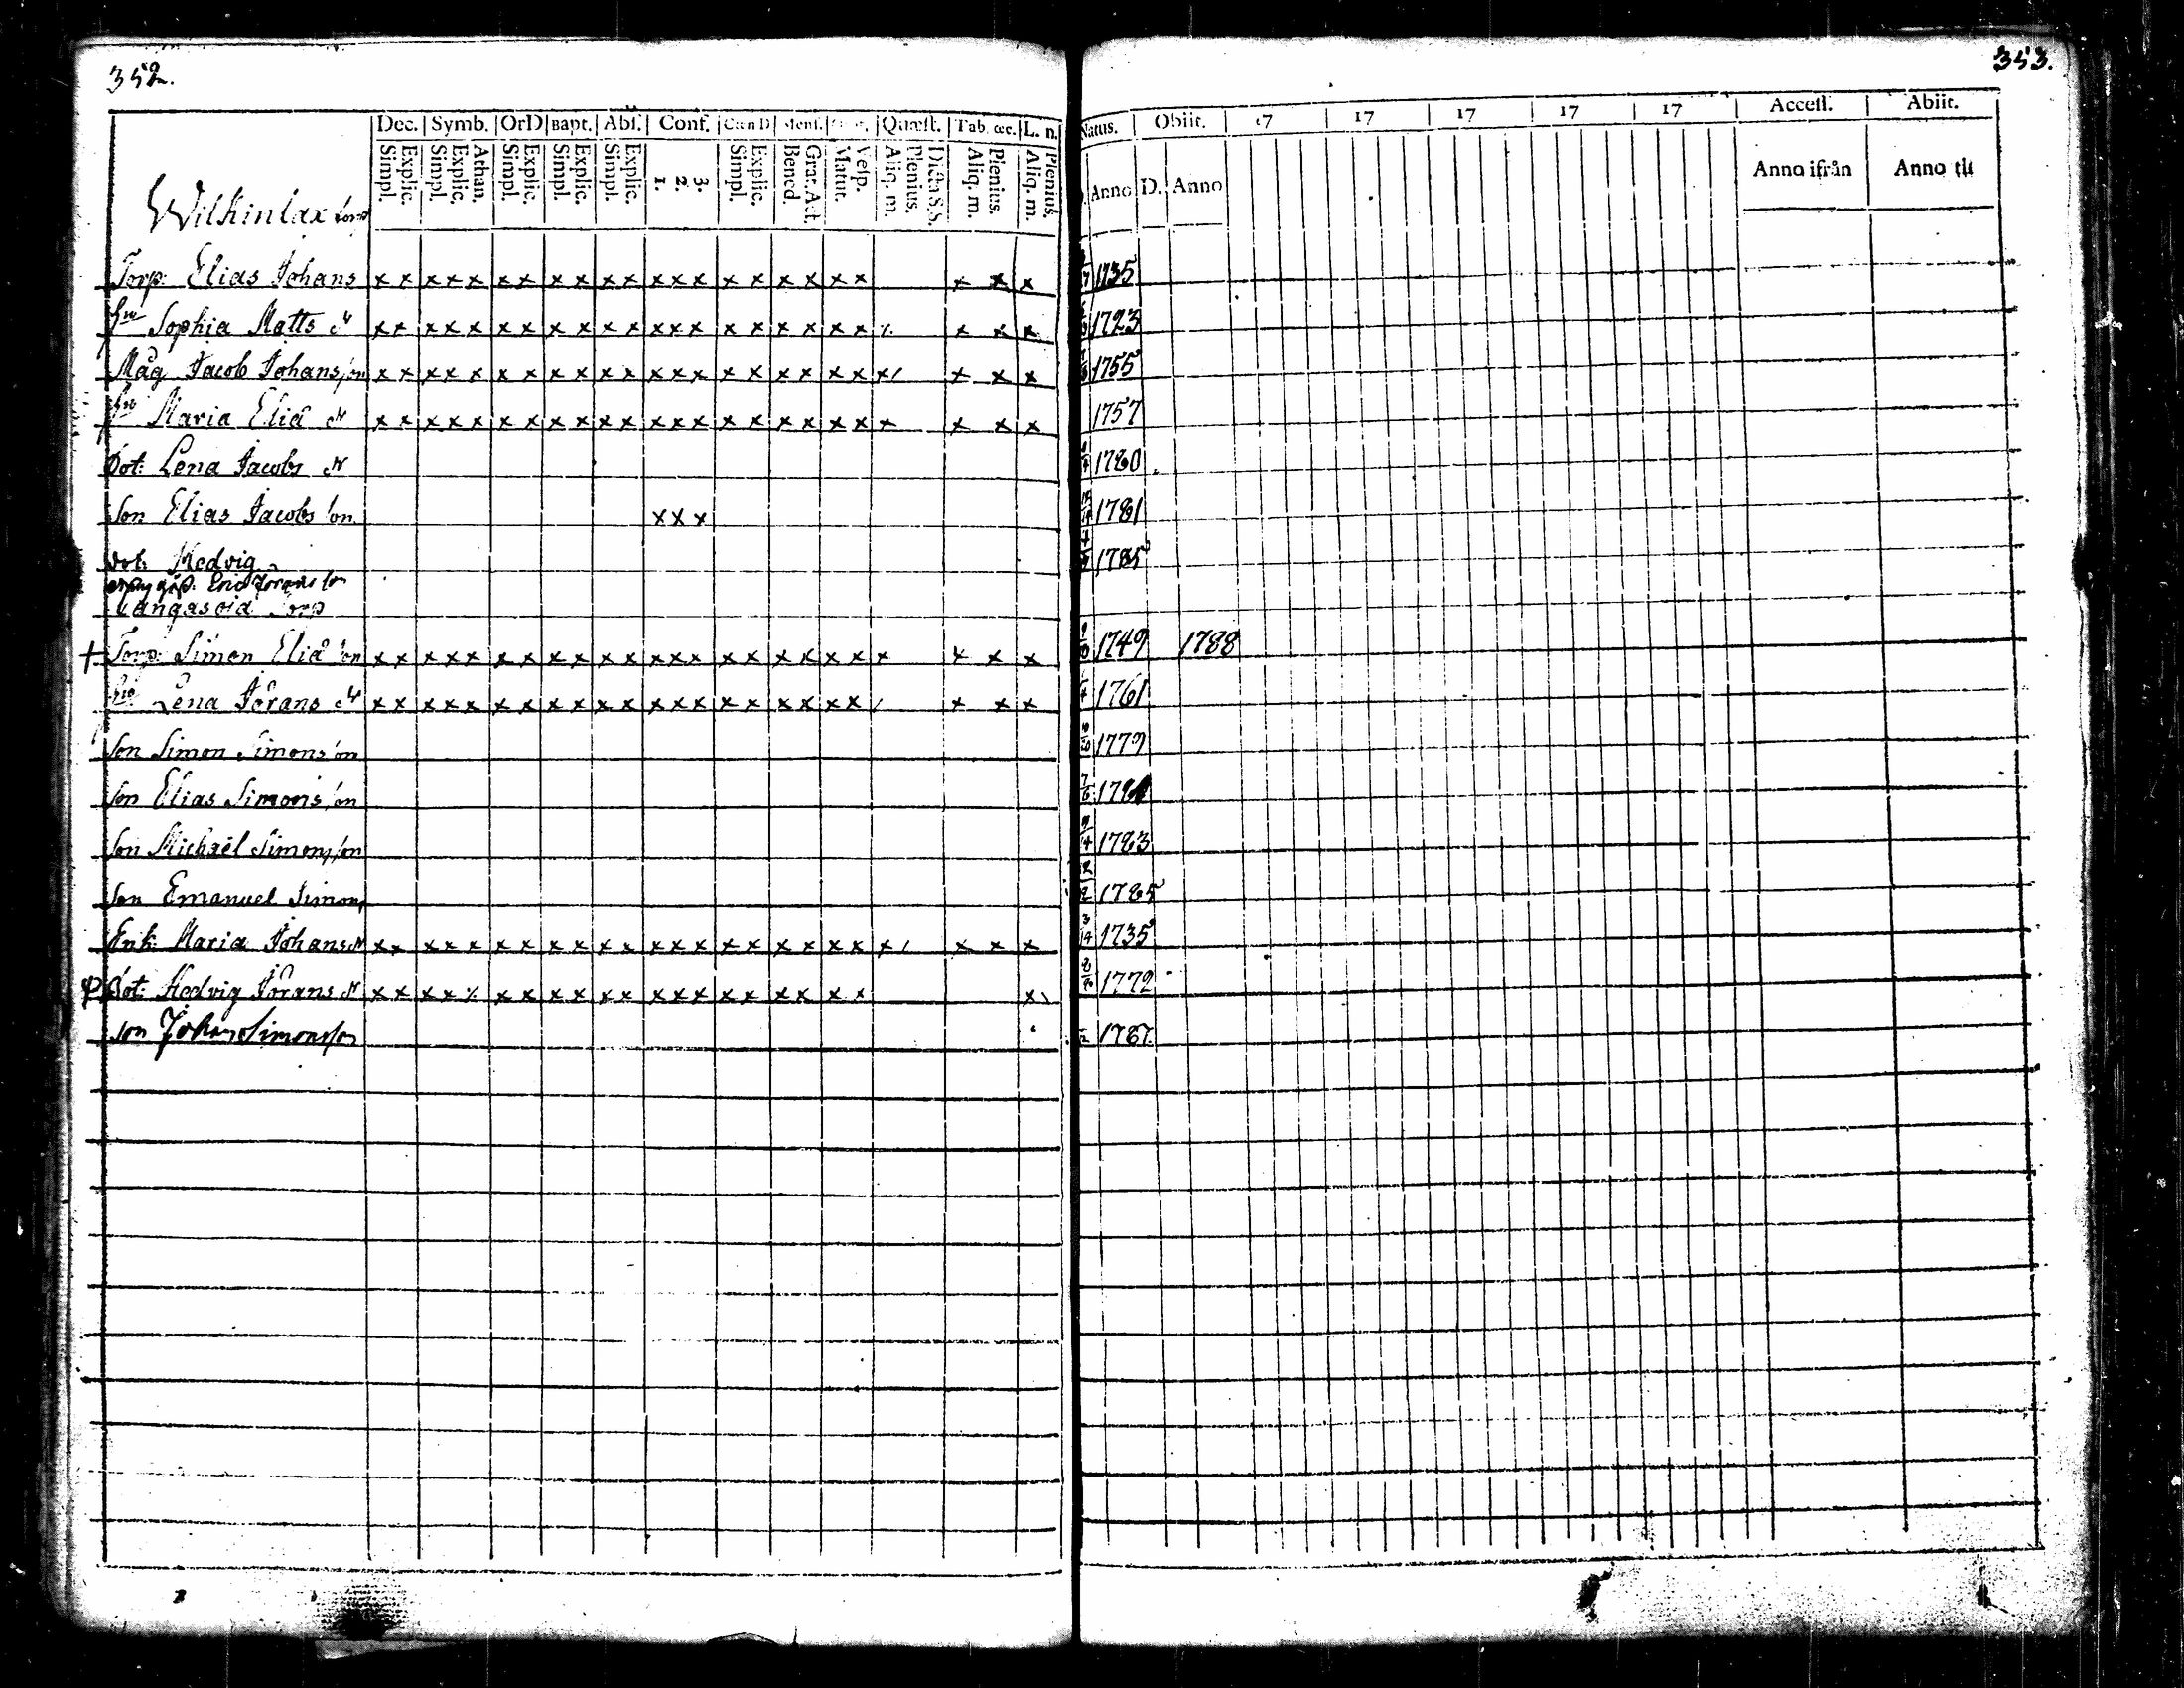 352.
353.
Dec. Symb. OrD Bapt. Abs. Conf. Quæst. Tab. œc. L. n. Natus. Obiit. 17 17 17 17 17 Access. Abiit.
Simpl. Explic. Simpl. Explic. Athan. Simpl. Explic. Simpl. Explic. Simpl. Explic. 1. 2. 3. Simpl. Explic. Bened. Grat. Act. Matut. Vesp. Aliq. m. Plenius. Dicta S.S. Aliq. m. Plenius. Aliq. m. Plenius. Anno D. Anno Anno ifrån Anno til
Wilkinlax torp
Torp: Elias Johans x x x x x x x x x x x x x x x x x x x x x x x 1735
hu Sophia Matts d x x x x x x x x x x x x x x x x x x x x x x x 1723
Måg Jacob Johans son x x x x x x x x x x x x x x x x x x x x x x x x 1755
hu Maria Eliæ d x x x x x x x x x x x x x x x x x x x x x x x x 1757
Dot: Lena Jacobs d 1780
Son Elias Jacobs son x x x 1781
Dot: Hedvig 1785
Torp
+ Torp: Simon Eliæ son x x x x x x x x x x x x x x x x x x x x x x x x 1749 1788
hu Lena Jörans d x x x x x x x x x x x x x x x x x x x x x x x 1761
Son Simon Simons son 1779
Son Elias Simons son
Son Michaël Simons son 1783
Son Emanuel Simons 1785
Enk: Maria Johans d x x x x x x x x x x x x x x x x x x x x x x x x 1735
Dot: Hedvig Jörans d x x x x x x x x x x x x x x x x x x x x 1772
Son Johan Simonsson 1787.